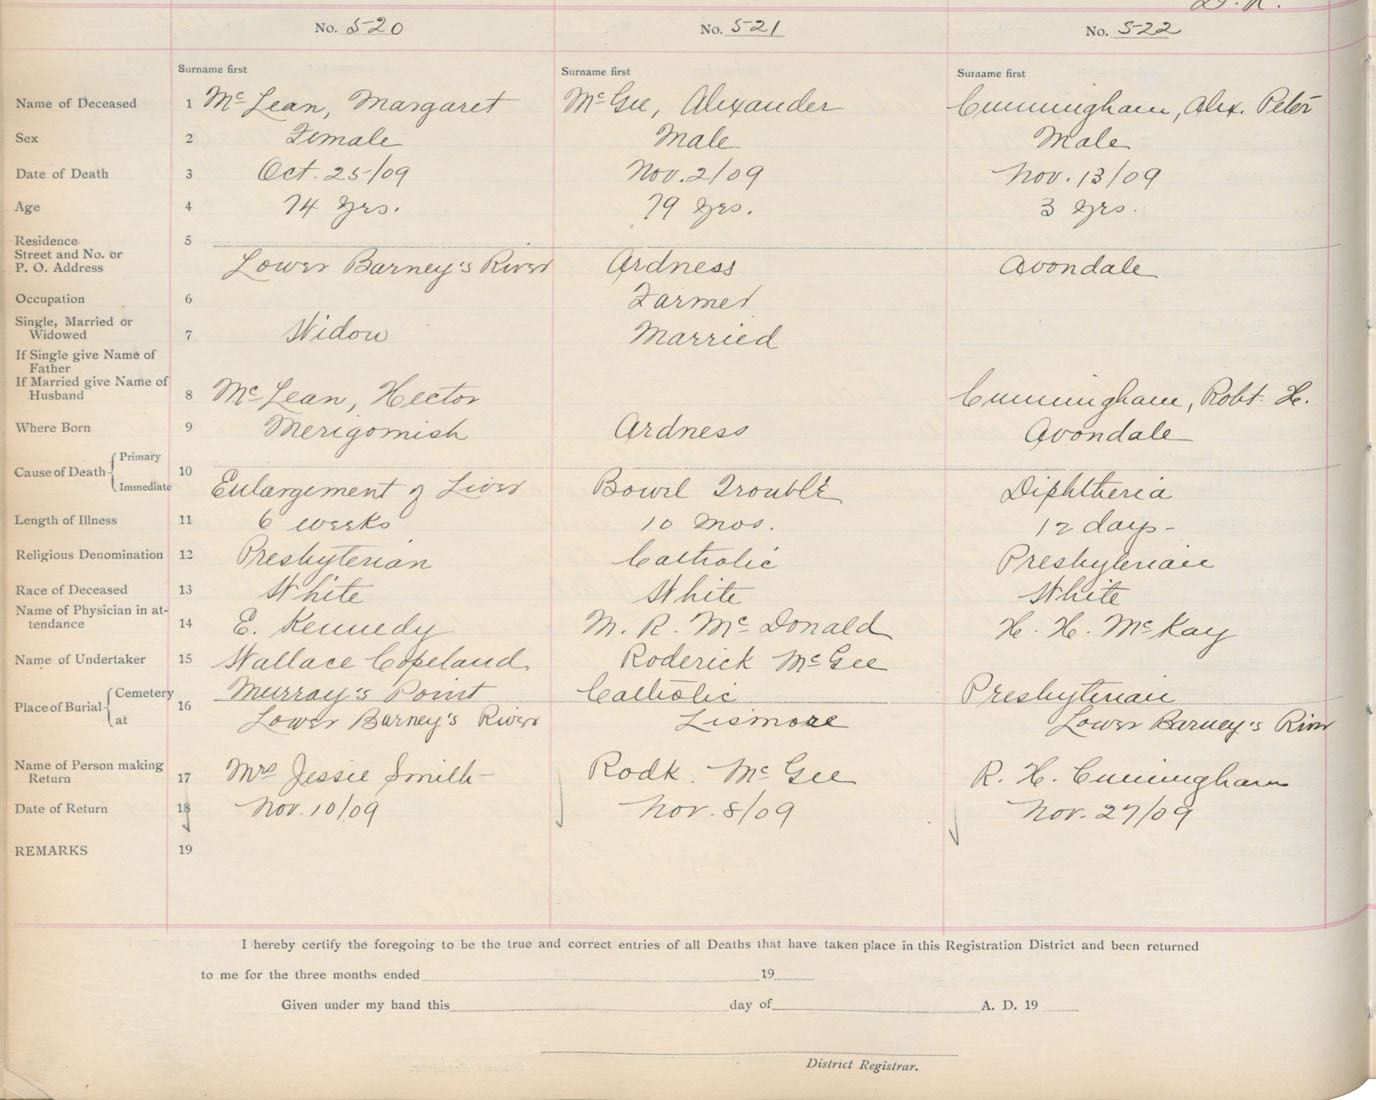 No. 520 No. 521 No. 522
Surname first Surname first Surname first
Name of Deceased 1 McLean, Margaret McGee, Alexander Cunningham, Alex. Peter
Sex 2 Female Male Male
Date of Death 3 Oct. 25/09 Nov. 2/09 Nov. 13/09
Age 4 74 yrs. 79 yrs. 3 yrs.
Residence 5
Street and No. or
P. O. Address Lower Barney's River Ardness Avondale
Occupation 6 Farmer
Single, Married or
Widowed 7 Widow Married
If Single give Name of
Father
If Married give Name of
Husband 8 McLean, Hector Cunningham, Robt. H.
Where Born 9 Merigomish Ardness Avondale
Cause of Death Primary 10
Immediate Enlargement of Liver Bowel Trouble Diphtheria
Length of Illness 11 6 weeks 10 mos. 12 days-
Religious Denomination 12 Presbyterian Catholic Presbyterian
Race of Deceased 13 White White White
Name of Physician in at-
tendance 14 E. Kennedy M. R. McDonald H. H. McKay
Name of Undertaker 15 Wallace Copeland Roderick McGee
Place of Burial Cemetery 16 Murray's Point Catholic Presbyterian
at Lower Barney's River Lismore Lower Barney's River
Name of Person making
Return 17 Mrs Jessie Smith Rodk. McGee R. H. Cunningham
Date of Return 18 Nov. 10/09 Nov. 8/09 Nov. 27/09
REMARKS 19
I hereby certify the foregoing to be the true and correct entries of all Deaths that have taken place in this Registration District and been returned
to me for the three months ended 19
Given under my hand this day of A. D. 19
District Registrar.